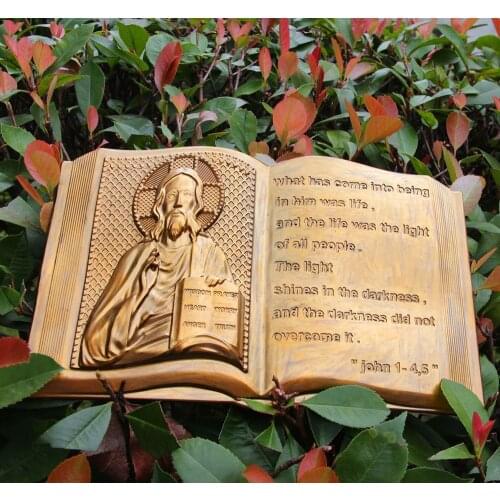 what has come into being
in him was life ,
and the life was the light
of all people .
The light
shines in the darkness ,
and the darkness did not
overcome it .
" john 1- 4,5 "
HEART
TRUTH